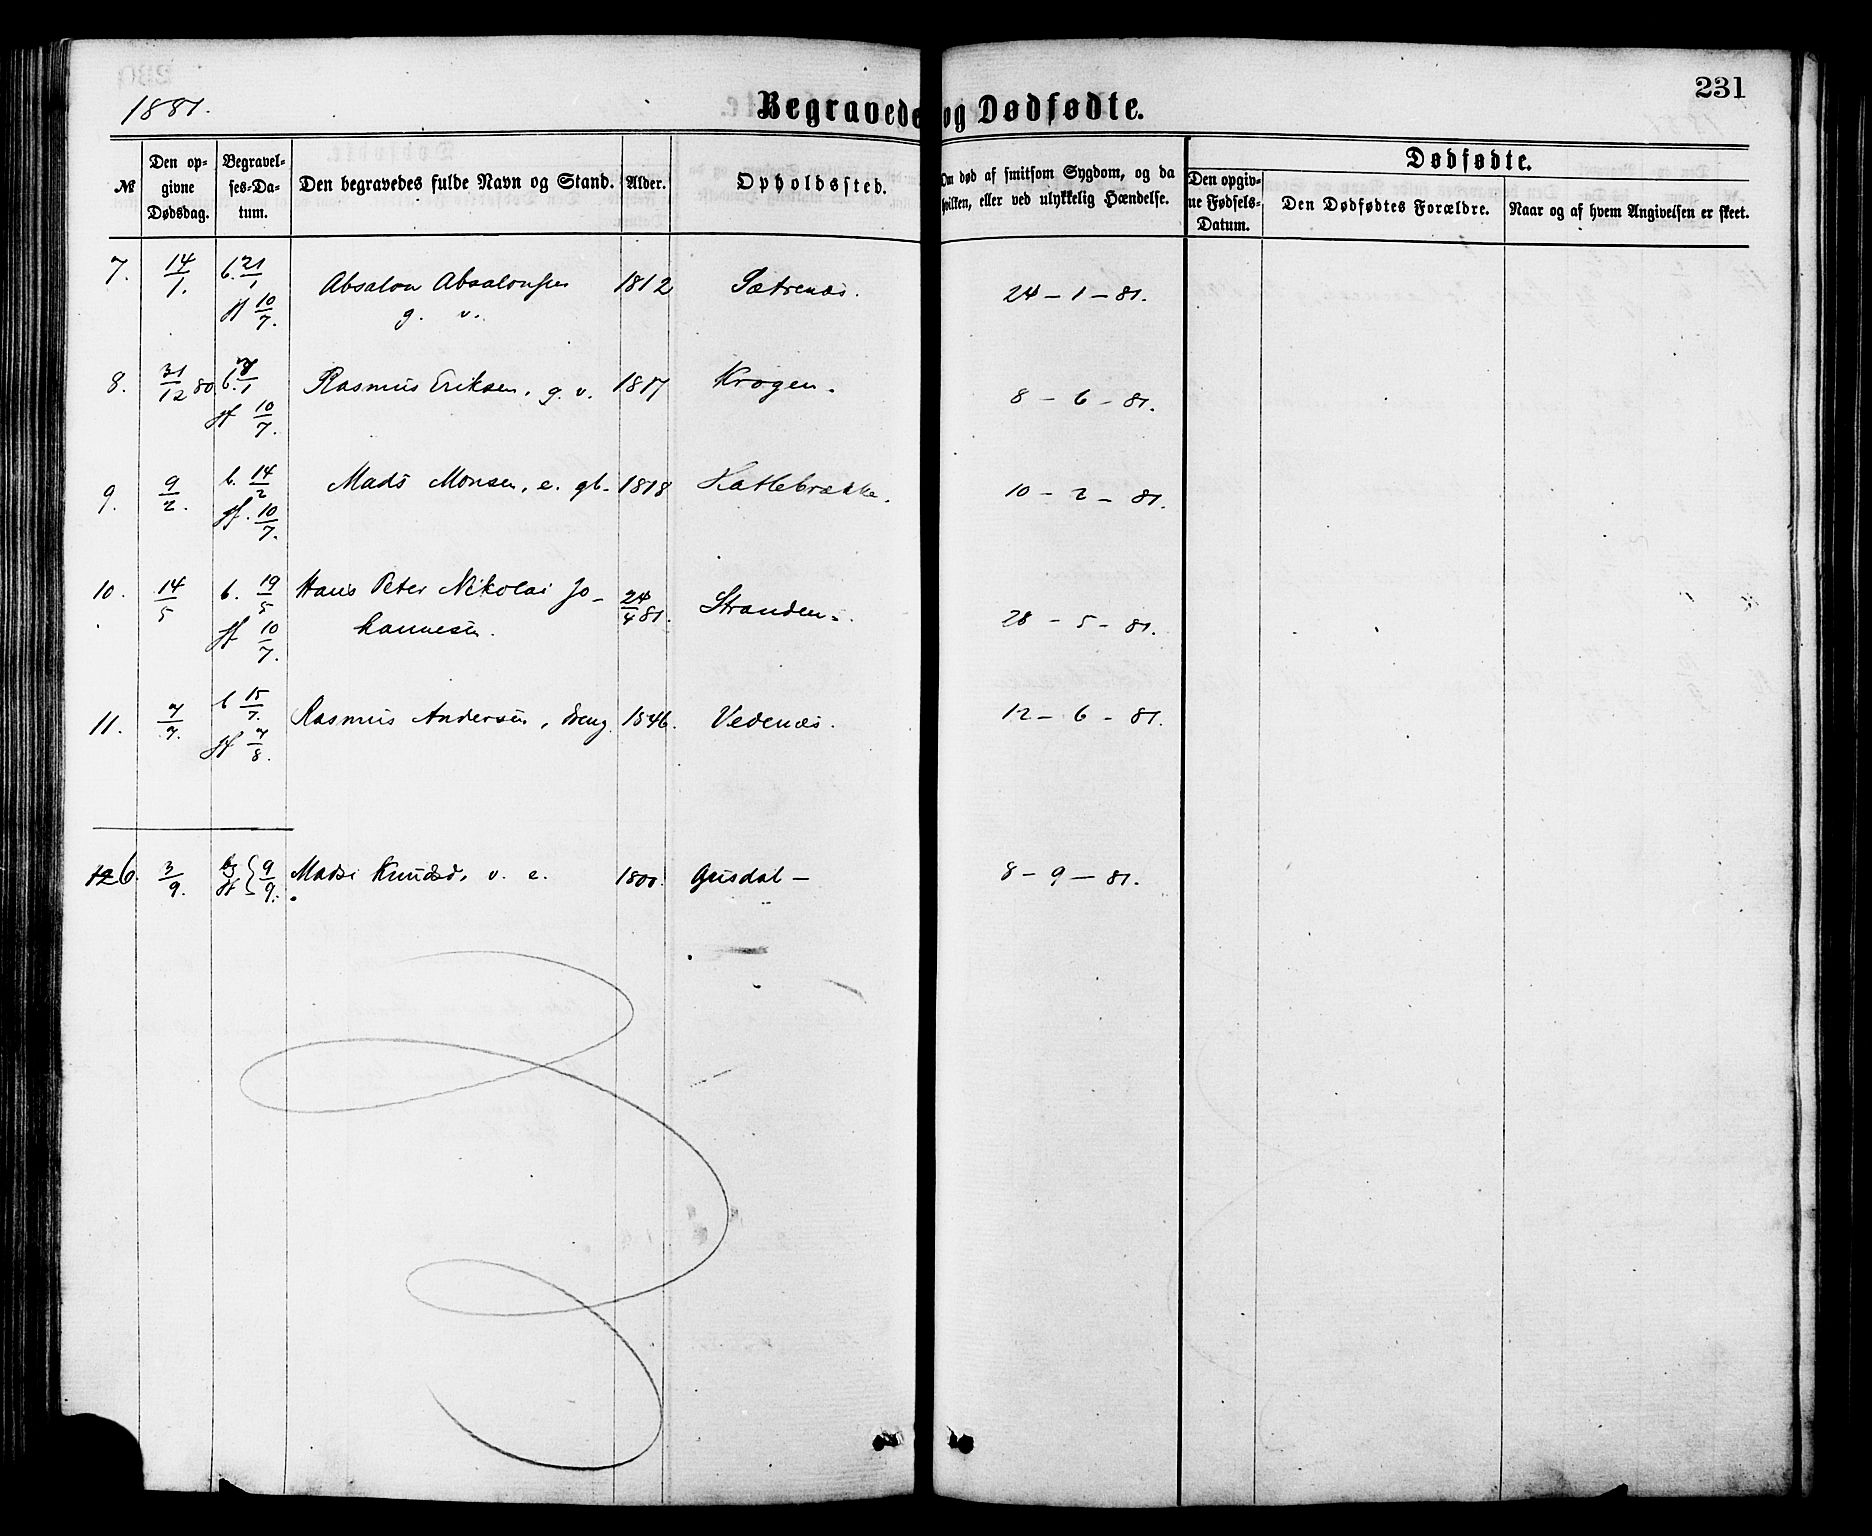 1881.
Begravede og Dødfødte.
231
№
Den op-
givne
Dødsdag.
Begravel-
ses-Da-
tum.
Den begravedes fulde Navn og Stand.
Alder.
Opholdssted.
Om død af smitsom Sygdom, og da
hvilken, eller ved ulykkelig Hændelse.
Dødfødte.
Den opgiv-
ne Fødsels-
Datum.
Den Dødfødtes Forældre.
Naar og af hvem Angivelsen er skeet.
7. 14/1. b. 21/1 Absalon Absalonsen 1812 Sætrenæs. 24 - 1 - 81.
jf 10/7. g. v.
8. 31/12 80. b. /1 Rasmus Eriksen, g. v. 1817 Krogen. 8 - 6 - 81.
jf 10/7.
9. 9/2. b. 14/2 Mads Monsen, e. gb. 1818 Kattebrække. 10 - 2 - 81.
jf. 10/7.
10. 14/5 b. 19/5 Hans Peter Nikolai Jo- 24/4 81. Stranden. 28 - 5 - 81.
jf 10/7. hannesen.
11. 7/7. b 15/7. Rasmus Andersen, 1846. Vedenæs. 12 - 6 - 81.
jf 7/8.
126. 3/9. bg jf } 9/9. Madsi Knudsd. v. e. 1800. Gusdal - 8 - 9 - 81.